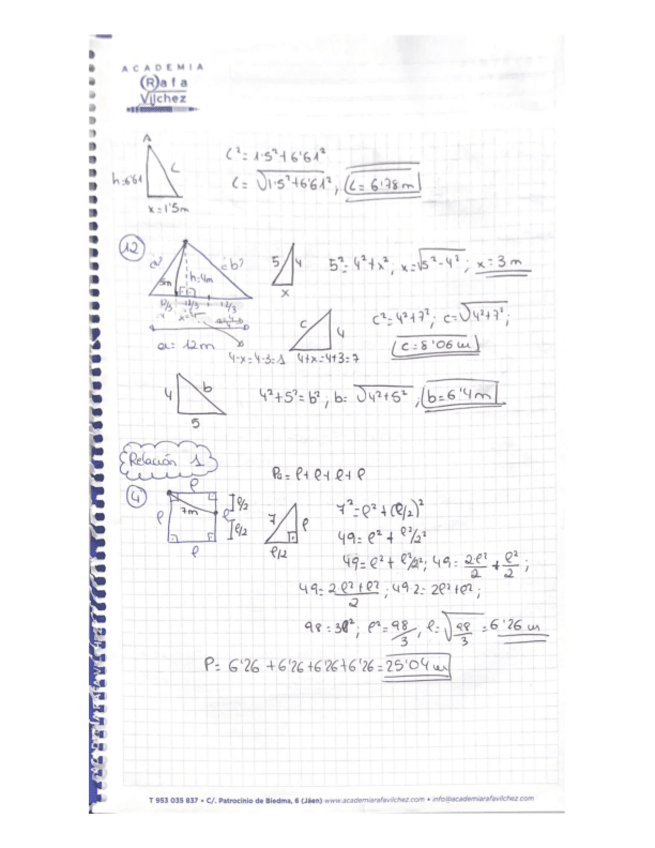 ACADEMIA
Rafa
Vílchez
A
h=6'61
L
x=1'5m
L²=1'5²+6'61²
L=√1'5²+6'61²; L=6'78m
12
c? b?
5m h=4m
12/3 12/3 12/3
a=12m
4-x=4-3=1 4+x=4+3=7
5 4
x
5²=4²+x²; x=√5²-4²; x=3m
c 4
c²=4²+7²; c=√4²+7²;
c=8'06m
4 b
5
4²+5²=b²; b=√4²+5²; b=6'4m
Relación 1
P=l+l+l+l
4
l
l 7m l l/2
l/2
l
7 l
l/2
7²=l²+(l/2)²
49=l²+l²/2²
49=l²+l²/2²; 49=2l²/2+l²/2;
49=2l²+l²/2; 49·2=2l²+l²;
98=3l²; l²=98/3, l=√98/3=6'26m
P=6'26+6'26+6'26+6'26=25'04m
T 953 035 837 • C/. Patrocinio de Biedma, 6 (Jáen) www.academiarafavilchez.com • info@academiarafavilchez.com